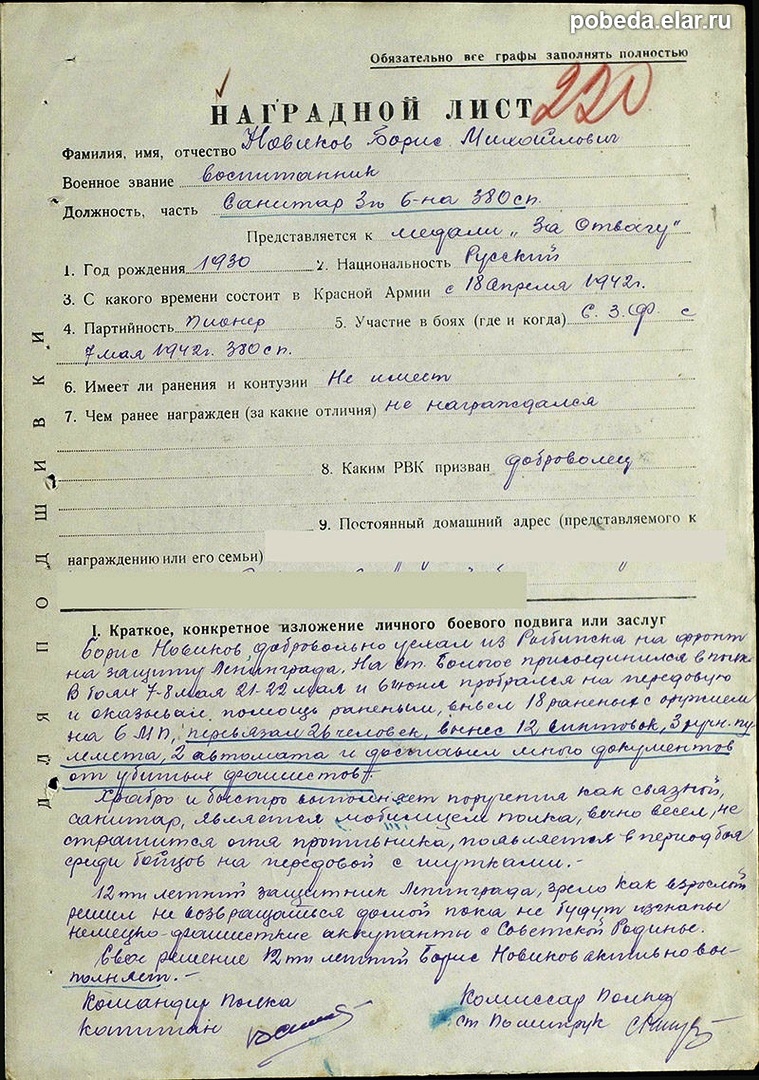 pobeda.elar.ru
Обязательно все графы заполнять полностью
НАГРАДНОЙ ЛИСТ 220
Фамилия, имя, отчество Новиков Борис Михайлович
Военное звание воспитанник
Должность, часть Санитар 3го б-на 380 сп.
Представляется к медали „За Отвагу"
1. Год рождения 1930 2. Национальность Русский
3. С какого времени состоит в Красной Армии с 18 апреля 1942г.
4. Партийность Пионер 5. Участие в боях (где и когда) С. З. Ф. с
7 мая 1942г. 380 сп.
6. Имеет ли ранения и контузии Не имеет
7. Чем ранее награжден (за какие отличия) не награждался
8. Каким РВК призван доброволец
9. Постоянный домашний адрес (представляемого к
награждению или его семьи)
I. Краткое, конкретное изложение личного боевого подвига или заслуг
Борис Новиков добровольно уехал из Рыбинска на фронт
на защиту Ленинграда. На ст. Бологое присоединился в полк.
В боях 7-8 мая 21-22 мая и 6 июня пробрался на передовую
и оказывал помощь раненым, вывел 18 раненых с оружием
на БМП, перевязал 26 человек, вынес 12 винтовок, 3 ручн. пу
лемета, 2 автомата и доставил много документов
от убитых фашистов.
Храбро и быстро выполняет поручения как связной,
санитар, является любимцем полка, вечно весел, не
страшится огня противника, появляется в период боя
среди бойцов на передовой с шутками.-
12ти летний защитник Ленинграда, зрело как взрослый
решил не возвращаться домой пока не будут изгнаны
немецко-фашисткие аккупанты с Советской Родины.
Свое решение 12ти летний Борис Новиков активно вы-
полняет.-
Командир Полка Комиссар Полка
капитан ст Политрук
ДЛЯ ПОДШИВКИ